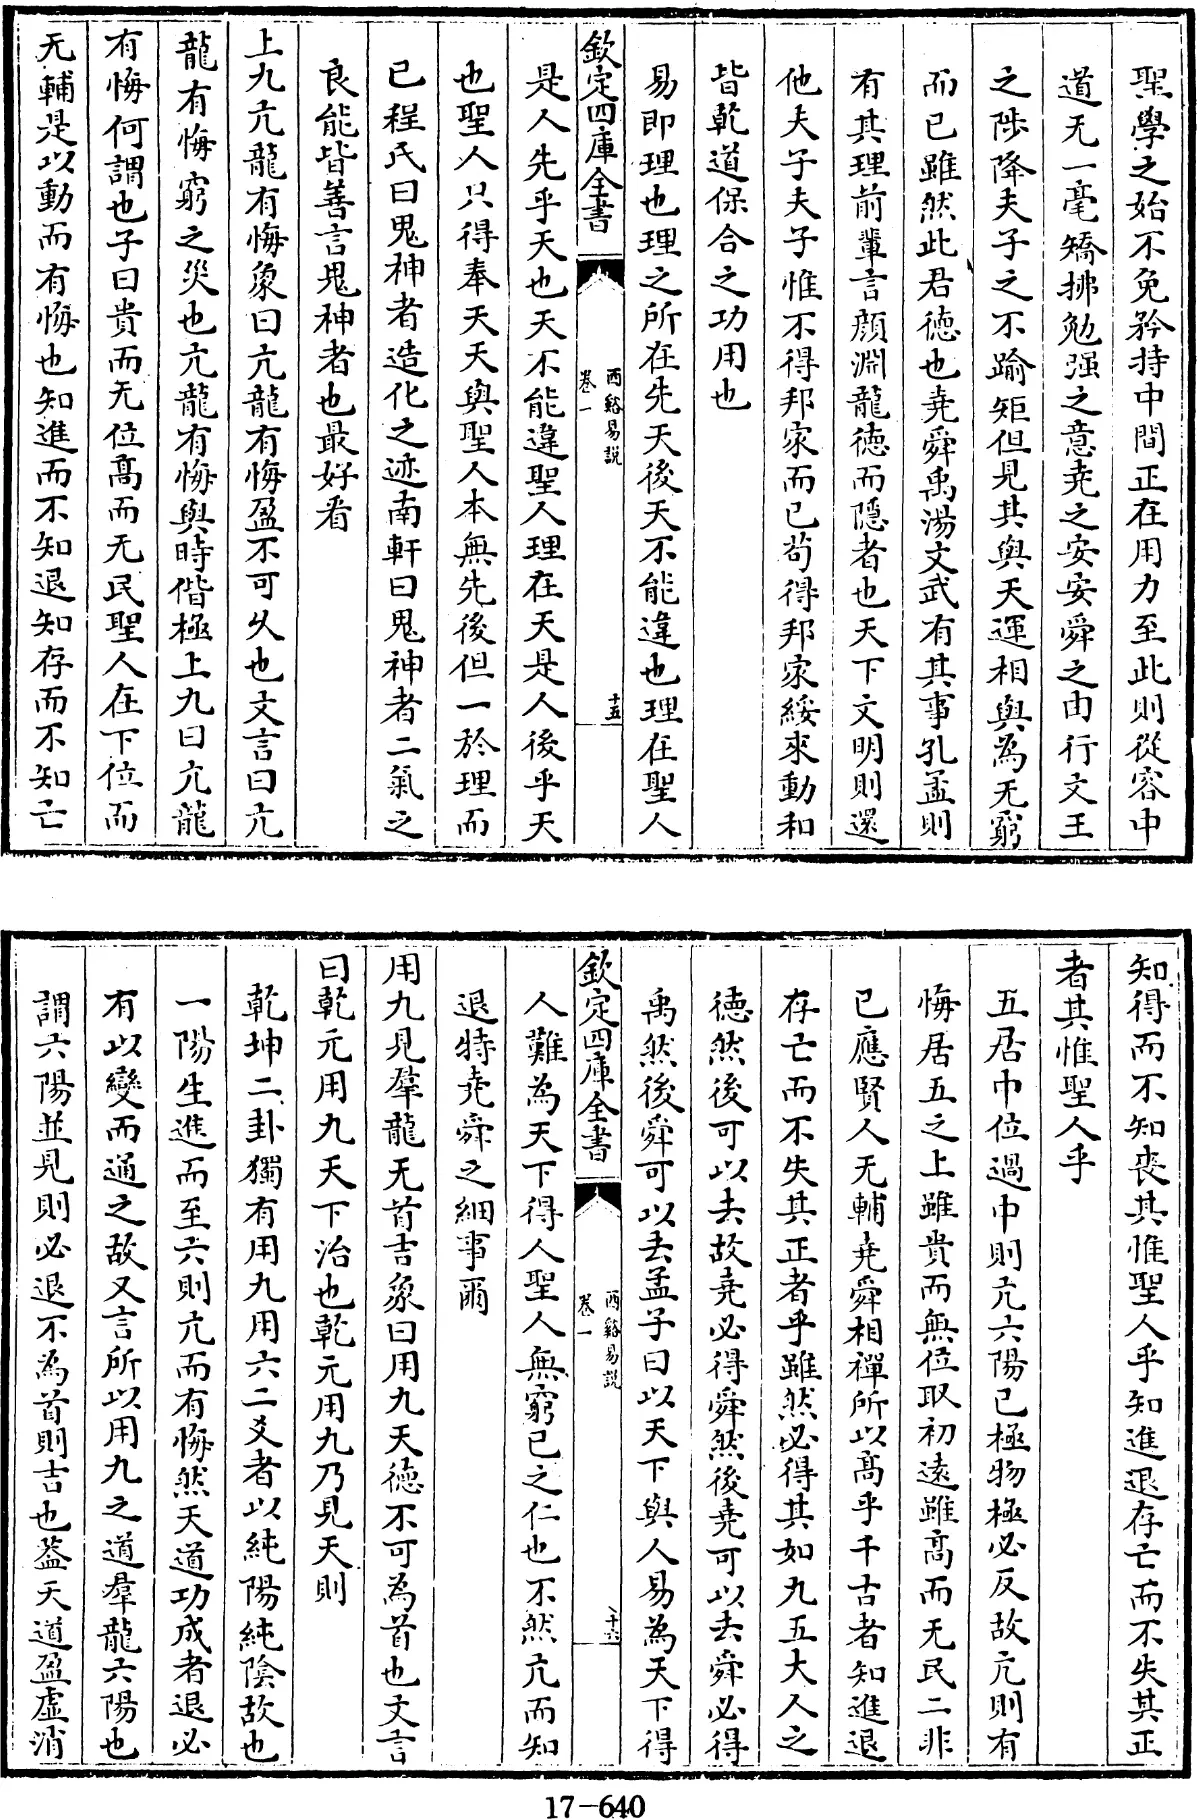 聖學之始不免矜持中間正在用力至此則從容中
道无一毫矯拂勉强之意堯之安安舜之由行文王
之陟降夫子之不踰矩但見其與天運相與為无窮
而已雖然此君德也堯舜禹湯文武有其事孔孟則
有其理前輩言顔淵龍德而隱者也天下文明則還
他夫子夫子惟不得邦家而已苟得邦家綏來動和
皆乾道保合之功用也
易即理也理之所在先天後天不能違也理在聖人
欽定四庫全書
西谿易説
卷一
十五
是人先乎天也天不能違聖人理在天是人後乎天
也聖人只得奉天天與聖人本無先後但一於理而
已程氏曰鬼神者造化之迹南軒曰鬼神者二氣之
良能皆善言鬼神者也最好看
上九亢龍有悔象曰亢龍有悔盈不可久也文言曰亢
龍有悔窮之災也亢龍有悔與時偕極上九曰亢龍
有悔何謂也子曰貴而无位髙而无民聖人在下位而
无輔是以動而有悔也知進而不知退知存而不知亡
知得而不知喪其惟聖人乎知進退存亡而不失其正
者其惟聖人乎
五居中位過中則亢六陽已極物極必反故亢則有
悔居五之上雖貴而無位取初遠雖髙而无民二非
已應賢人无輔堯舜相禪所以髙乎千古者知進退
存亡而不失其正者乎雖然必得其如九五大人之
德然後可以去故堯必得舜然後堯可以去舜必得
禹然後舜可以去孟子曰以天下與人易為天下得
欽定四庫全書
西谿易説
卷一
十六
人難為天下得人聖人無窮已之仁也不然亢而知
退特堯舜之細事爾
用九見羣龍无首吉象曰用九天德不可為首也文言
曰乾元用九天下治也乾元用九乃見天則
乾坤二卦獨有用九用六二爻者以純陽純陰故也
一陽生進而至六則亢而有悔然天道功成者退必
有以變而通之故又言所以用九之道羣龍六陽也
謂六陽並見則必退不為首則吉也葢天道盈虛消
17-640